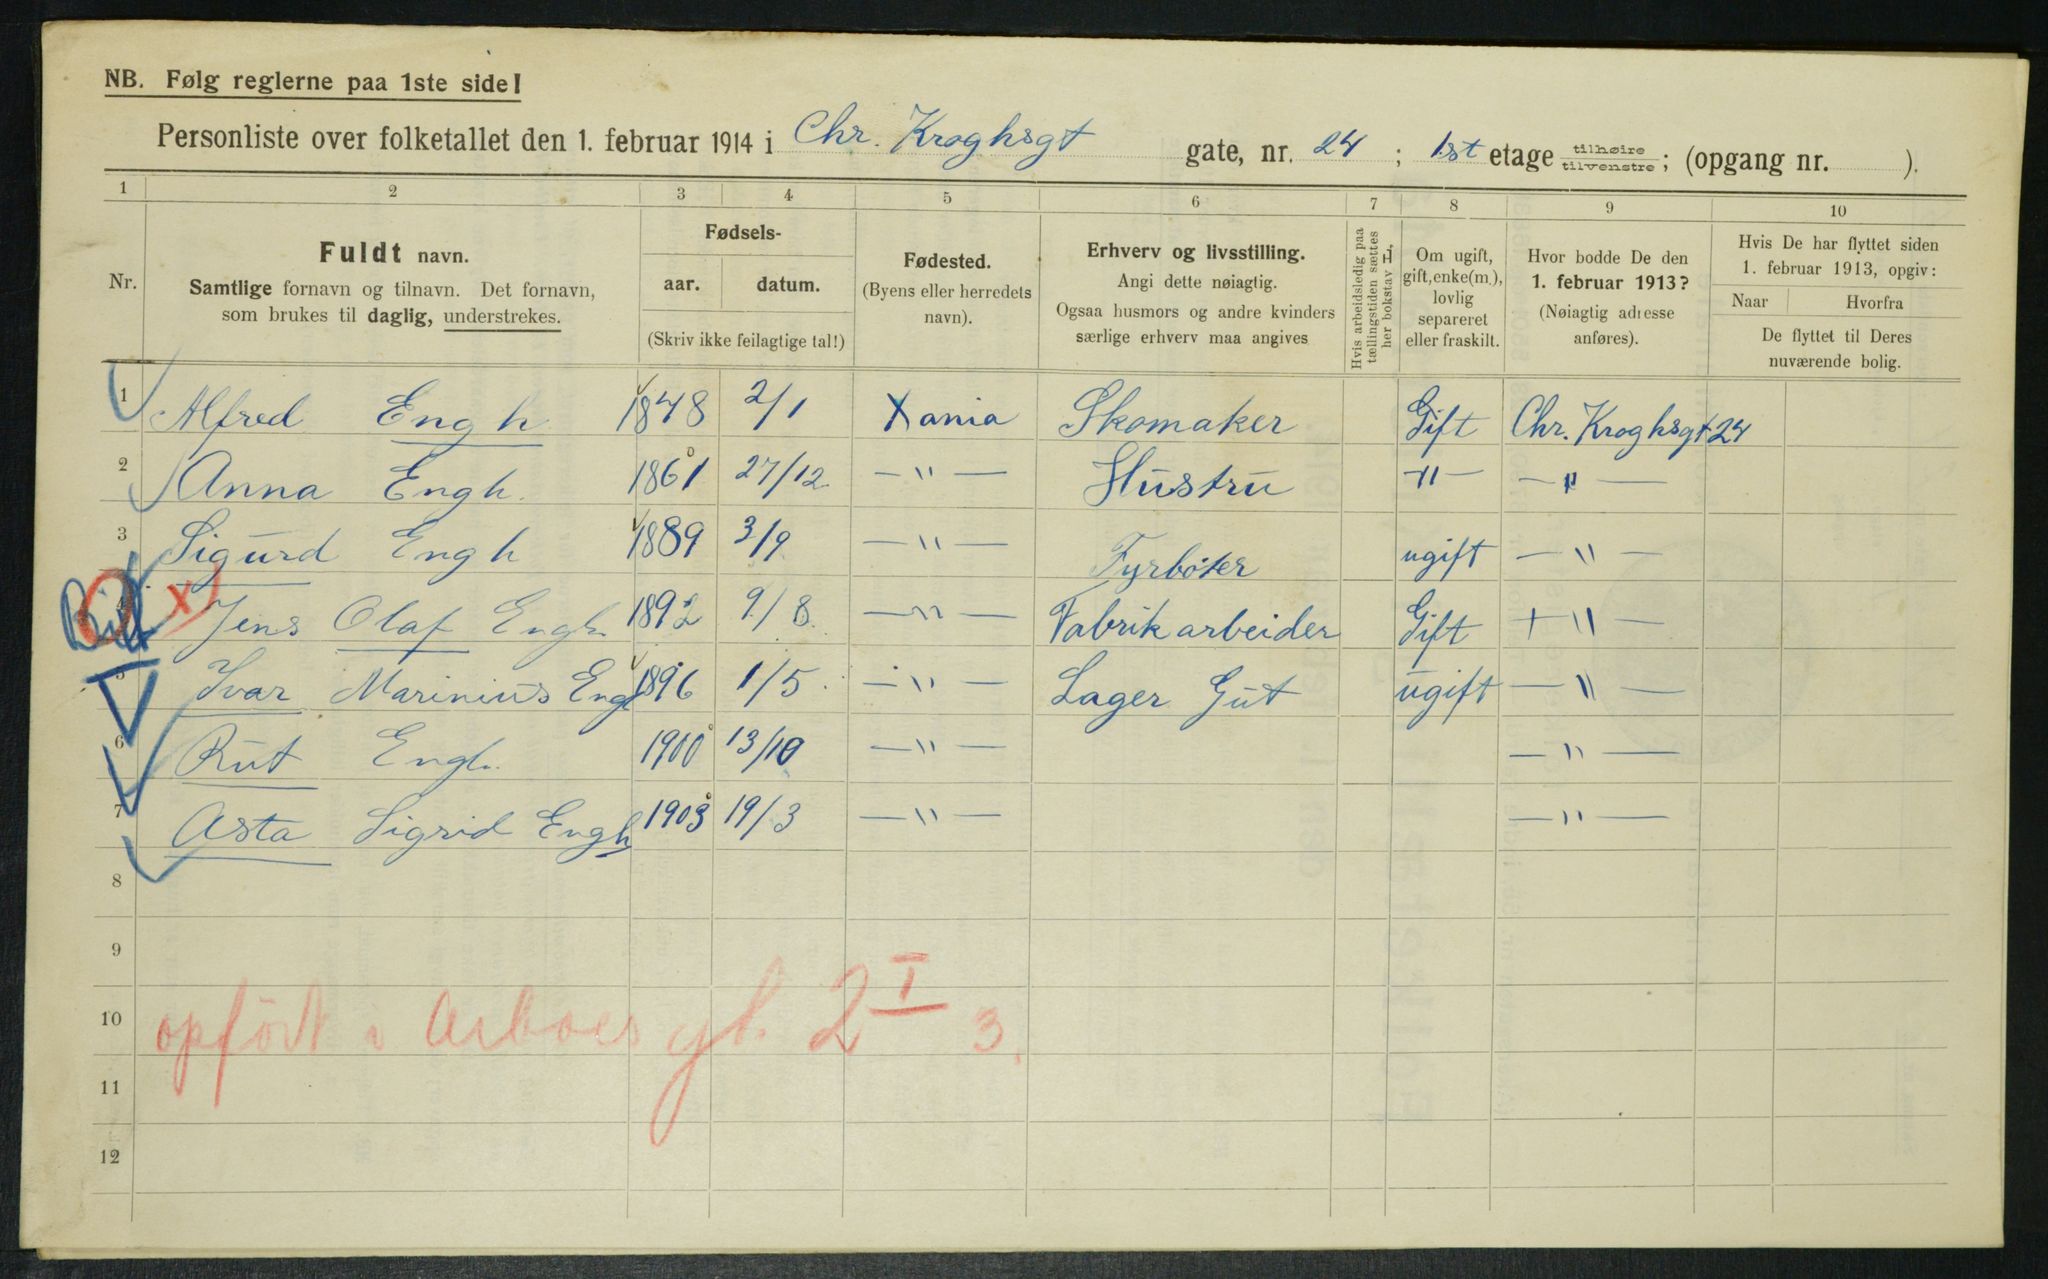 NB. Følg reglerne paa 1ste side!
Personliste over folketallet den 1. februar 1914 i Chr. Kroghsgt gate, nr. 24 ; 1.st etage tilhøire tilvenstre; (opgang nr. ).
1 2 3 4 5 6 7 8 9 10
Nr.
Fuldt navn.
Samtlige fornavn og tilnavn. Det fornavn,
som brukes til daglig, understrekes.
Fødsels-
aar. datum.
(Skriv ikke feilagtige tal!)
Fødested.
(Byens eller herredets
navn).
Erhverv og livsstilling.
Angi dette nøiagtig.
Ogsaa husmors og andre kvinders
særlige erhverv maa angives
Hvis arbeidsledig paa
tællingstiden sættes
her bokstav L,
Om ugift,
gift, enke(m.),
lovlig
separeret
eller fraskilt.
Hvor bodde De den
1. februar 1913?
(Nøiagtig adresse
anføres).
Hvis De har flyttet siden
1. februar 1913, opgiv:
Naar Hvorfra
De flyttet til Deres
nuværende bolig.
1 Alfred Engh 1848 2/1 Xania Skomaker Gift Chr. Kroghsgt 24
2 Anna Engh. 1861 27/12. — " — Hustru — " — — " —
3 Sigurd Engh 1889 3/9 — " — Fyrbøter ugift — " —
4 x) Jens Olaf Engh. 1892 9/8. — " — Fabrikarbeider Gift — " —
5 Ivar Marinius Engh 1896 1/5. — " — Lager Gut ugift — " —
6 Rut Engh. 1900 13/10 — " — — " —
7 Asta Sigrid Engh 1903 19/3 — " — — " —
8
9
10 opført i Arboes gt. 2 I 3.
11
12